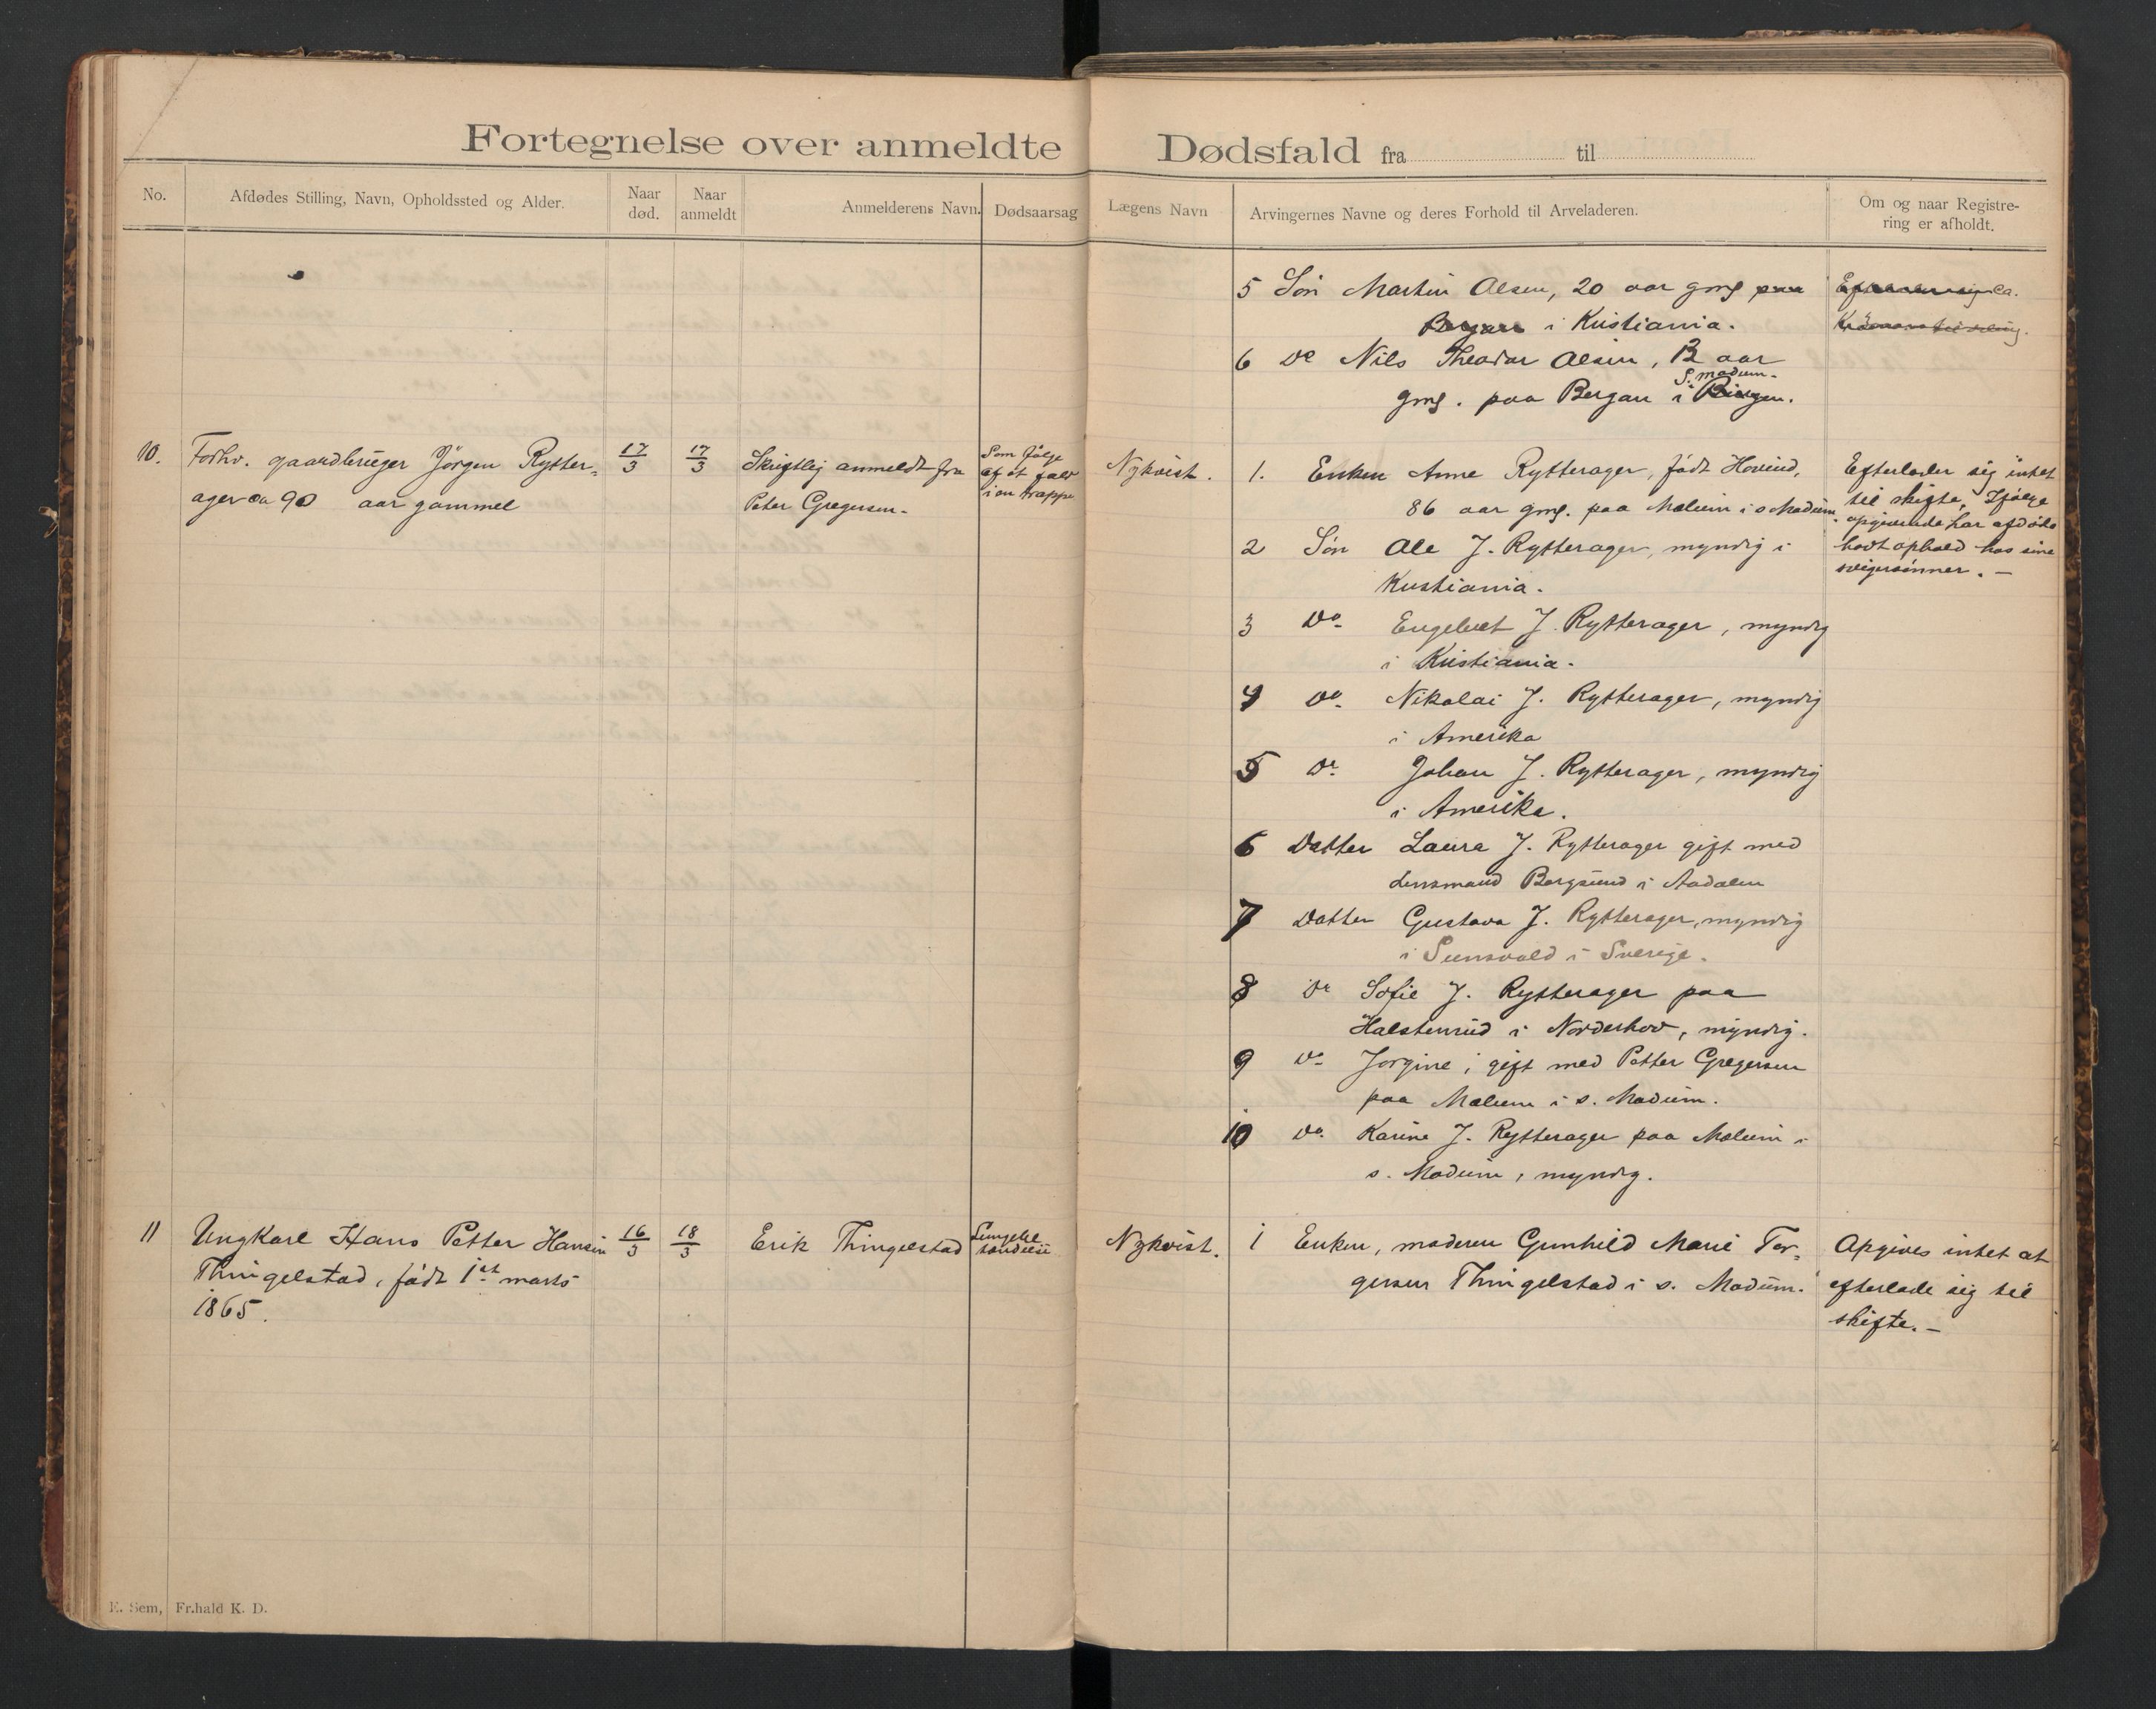 Fortegnelse over anmeldte Dødsfald fra til
No.
Afdødes Stilling, Navn, Opholdssted og Alder.
Naar død.
Naar anmeldt
Anmelderens Navn.
Dødsaarsag
Lægens Navn
Arvingernes Navne og deres Forhold til Arveladeren.
Om og naar Registre-
ring er afholdt.
5 Søn Martin Olsen, 20 aar gml paa
Bergan i Kristiania.
6 Do Nils Theodor Olsen, 13 aar
S. Modum.
gml. paa Bergan i Bergen.
10. Forhv. gaardbruger Jörgen Rytter-
ager ca 90 aar gammel
17/3
17/3
Skriftlig anmeldt fra
Peter Gregersen.
Som følge
af et fald
i en trappe
Nykvist.
1. Enken Anne Rytterager, født Hovind,
86 aar gml. paa Melum i s Modum.
2 Søn Ole J. Rytterager, myndig i
Kristiania.
3 Do. Engebret J. Rytterager, myndig
i Kristiania.
4 Do. Nikolai J. Rytterager, myndig
i Amerika
5 Do. Johan J. Rytterager, myndig
i Amerika.
6 Datter Laura J. Rytterager gift med
Lensmand Bergsund i Aadalen
7 Datter Gustava J. Rytterager, myndig
i Sunsvald i Sverige.
8 Do Sofie J. Rytterager paa
Halstenrud i Norderhov, myndig.
9 Do Jorgine, gift med Petter Gregersen
paa Melum i s. Modum.
10 Do. Karine J. Rytterager paa Melum i
s. Modum, myndig.
Efterlader sig intet
til skifte, Ifølge
opgivende har afdøde
havt ophold hos sine
svigersønner. –
11 Ungkarl Hans Petter Hansen
Thingelstad, født 1st marts
1865.
16/3
18/3
Erik Thingelstad
Nykvist.
1 Enken, moderen Gunhild Marie Tor-
gersen Thingelstad i s. Modum.
Opgives intet at
efterlade sig til
skifte. –
E. Sem, Fr.hald K. D.